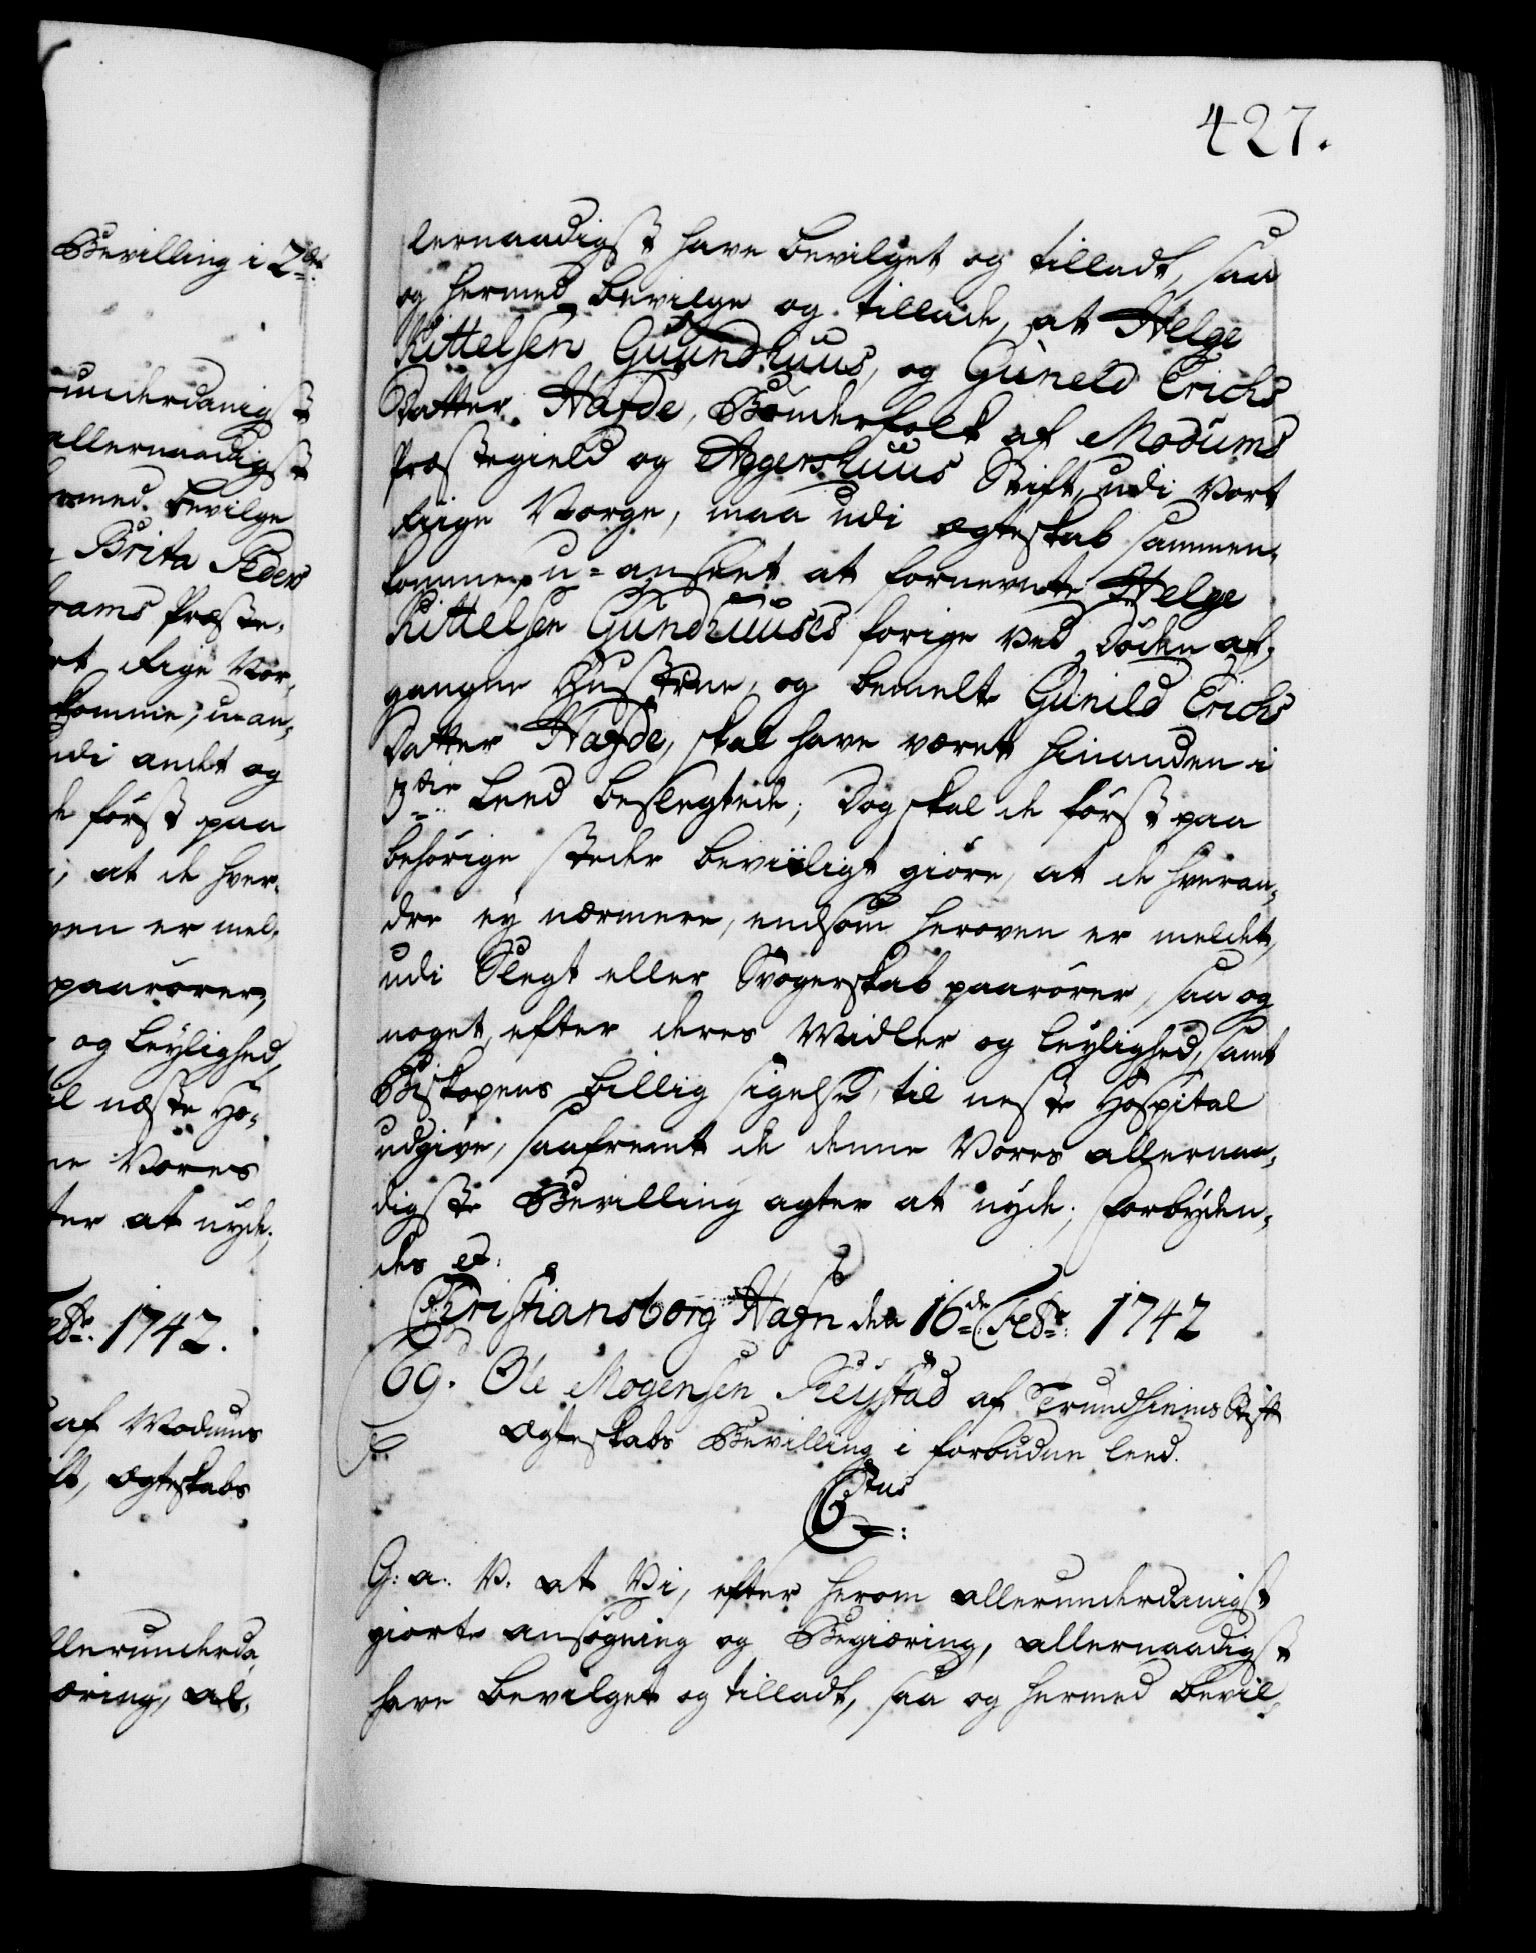 427.
Bevilling i 2det
underdanigst
allernaadigst
hermed bevilge
Brita Peders
Præste-
Rige Nor-
komme, u-an-
udi andet og
de först paa
at de hver-
oven er mel-
paarörer,
og Leylighed,
til næste Ho-
Vores
at nyde;
Febr: 1742.
af Modums
Ægteskabs
allerunderda-
æring, al-
lernaadigst have bevilget og tilladt, saa
og hermed bevilge og tillade, at Helge
Kittelsen Guundhuus, og Guneld Erichs
Datter Hafde, Bönderfolk af Modums
Præstegield og Aggershuus Stift, udi Vort
Riige Norge, maa udi Ægteskab sammen-
komme, u-anseet at fornevnte Helge
Kittelsen Gundhuuses forige ved Döden af-
gangne Hustrue, og bemelte Gunild Erichs
Datter Hafde, skal have været hinanden i
3die Leed beslegtede; Dog skal de först paa
behörige steder beviisligt giöre, at de hveran-
dre ey nærmere, endsom heroven er meldet,
udi Slegt eller Svogerskab paarörer, saa og
noget, efter deres Midler og Leylighed, samt
Biskopens billig sigelse, til neste Hospital
udgive, saafremt de denne Vores allernaa-
digste Bevilling agter at nyde; Forbyden-
des etc:
Christiansborg Hafn den 16de Febr: 1742
69. Ole Mogensen Reystad af Trundhiems Stift
Ægteskabs Bevilling i forbudne leed.
C6tus:
G: a: V. at Vi, efter herom allerunderdanigst
giorte ansögning og Begiæring, allernaadigst
have bevilget og tilladt, saa og hermed bevil-